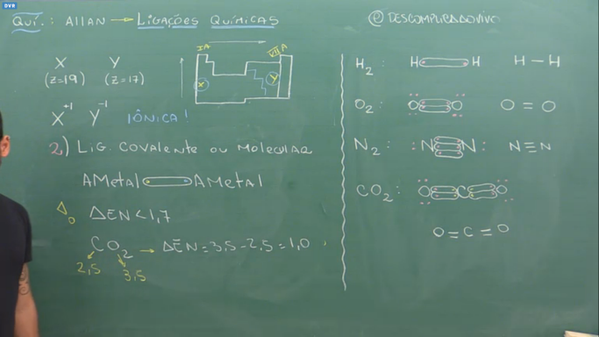 DVR
QUÍ.: ALLAN → LIGAÇÕES QUÍMICAS
@DESCOMPLICADOVIVO
X Y
(Z=19) (Z=17)
IA VII A
X Y
X+1 Y-1 IÔNICA!
2) LIG COVALENTE OU MOLECULAR
AMETAL AMETAL
Δo ΔEN < 1,7
CO2 → ΔEN = 3,5 - 2,5 = 1,0
2,5 3,5
H2: H H H - H
O2: O O O = O
N2: N N N ≡ N
CO2: O C O
O = C = O